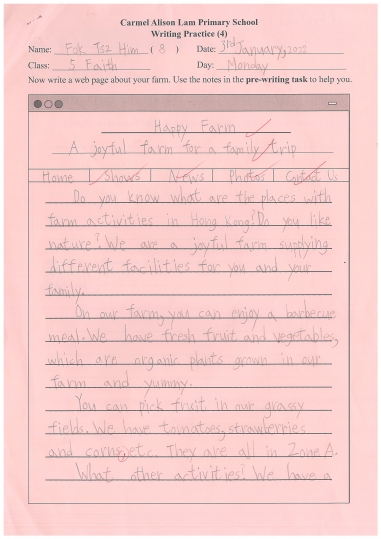 Carmel Alison Lam Primary School
Writing Practice (4)
Name: Fok Tsz Him ( 8 ) Date: 3rd January, 2022
Class: 5 Faith Day: Monday
Now write a web page about your farm. Use the notes in the pre-writing task to help you.
Happy Farm
A joyful farm for a family trip
Home Shows News Photos Contact Us
Do you know what are the places with
farm activities in Hong Kong? Do you like
nature? We are a joyful farm supplying
different facilities for you and your
family.
On our farm, you can enjoy a barbecue
meal. We have fresh fruit and vegetables,
which are organic plants grown in our
farm and yummy.
You can pick fruit in our grassy
fields. We have tomatoes, strawberries
and corns, etc. They are all in Zone A.
What other activities? We have a